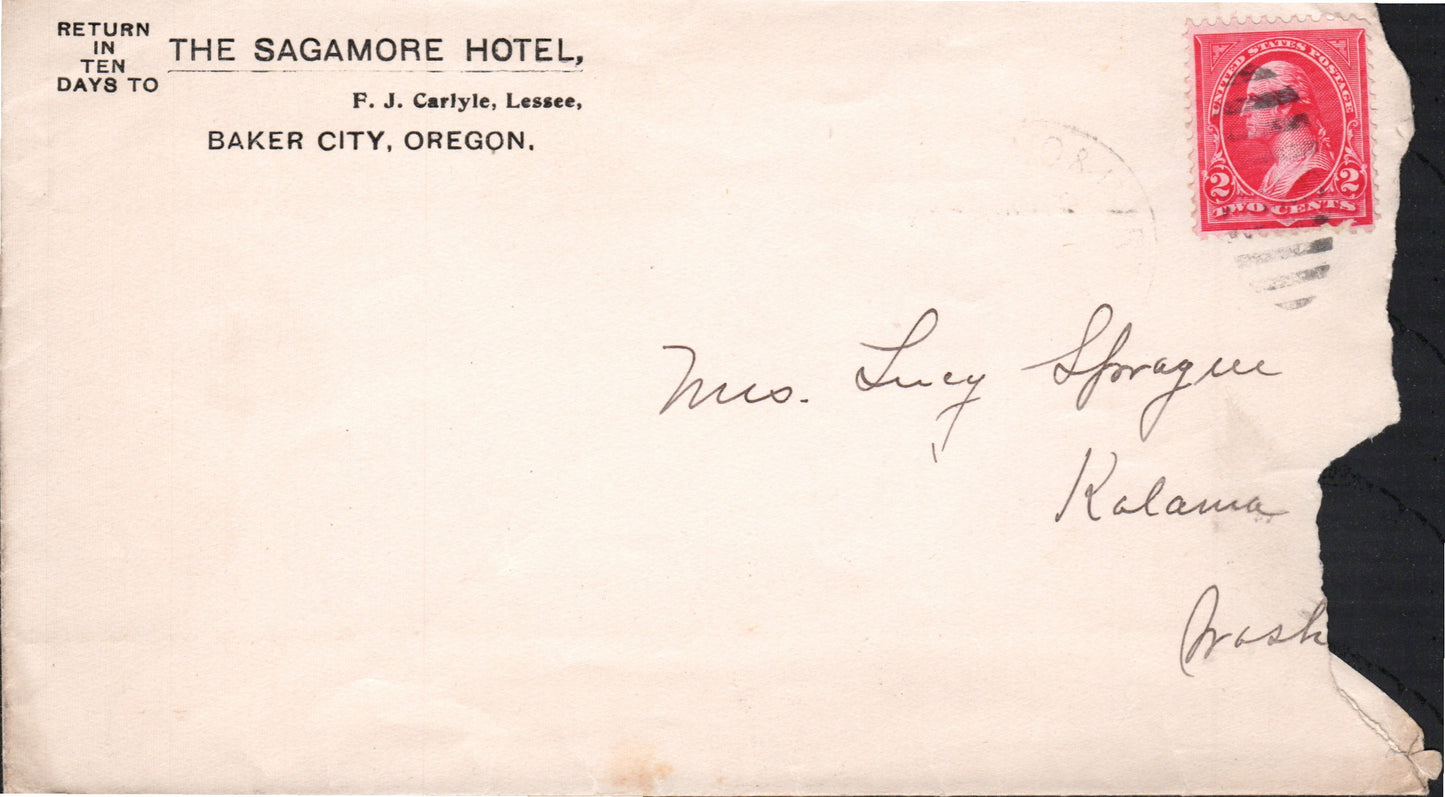 RETURN
IN
TEN
DAYS TO
THE SAGAMORE HOTEL,
F. J. Carlyle, Lessee,
BAKER CITY, OREGON.
UNITED STATES POSTAGE
2 2
TWO CENTS
Mrs. Lucy Sprague
Kalama
Wash